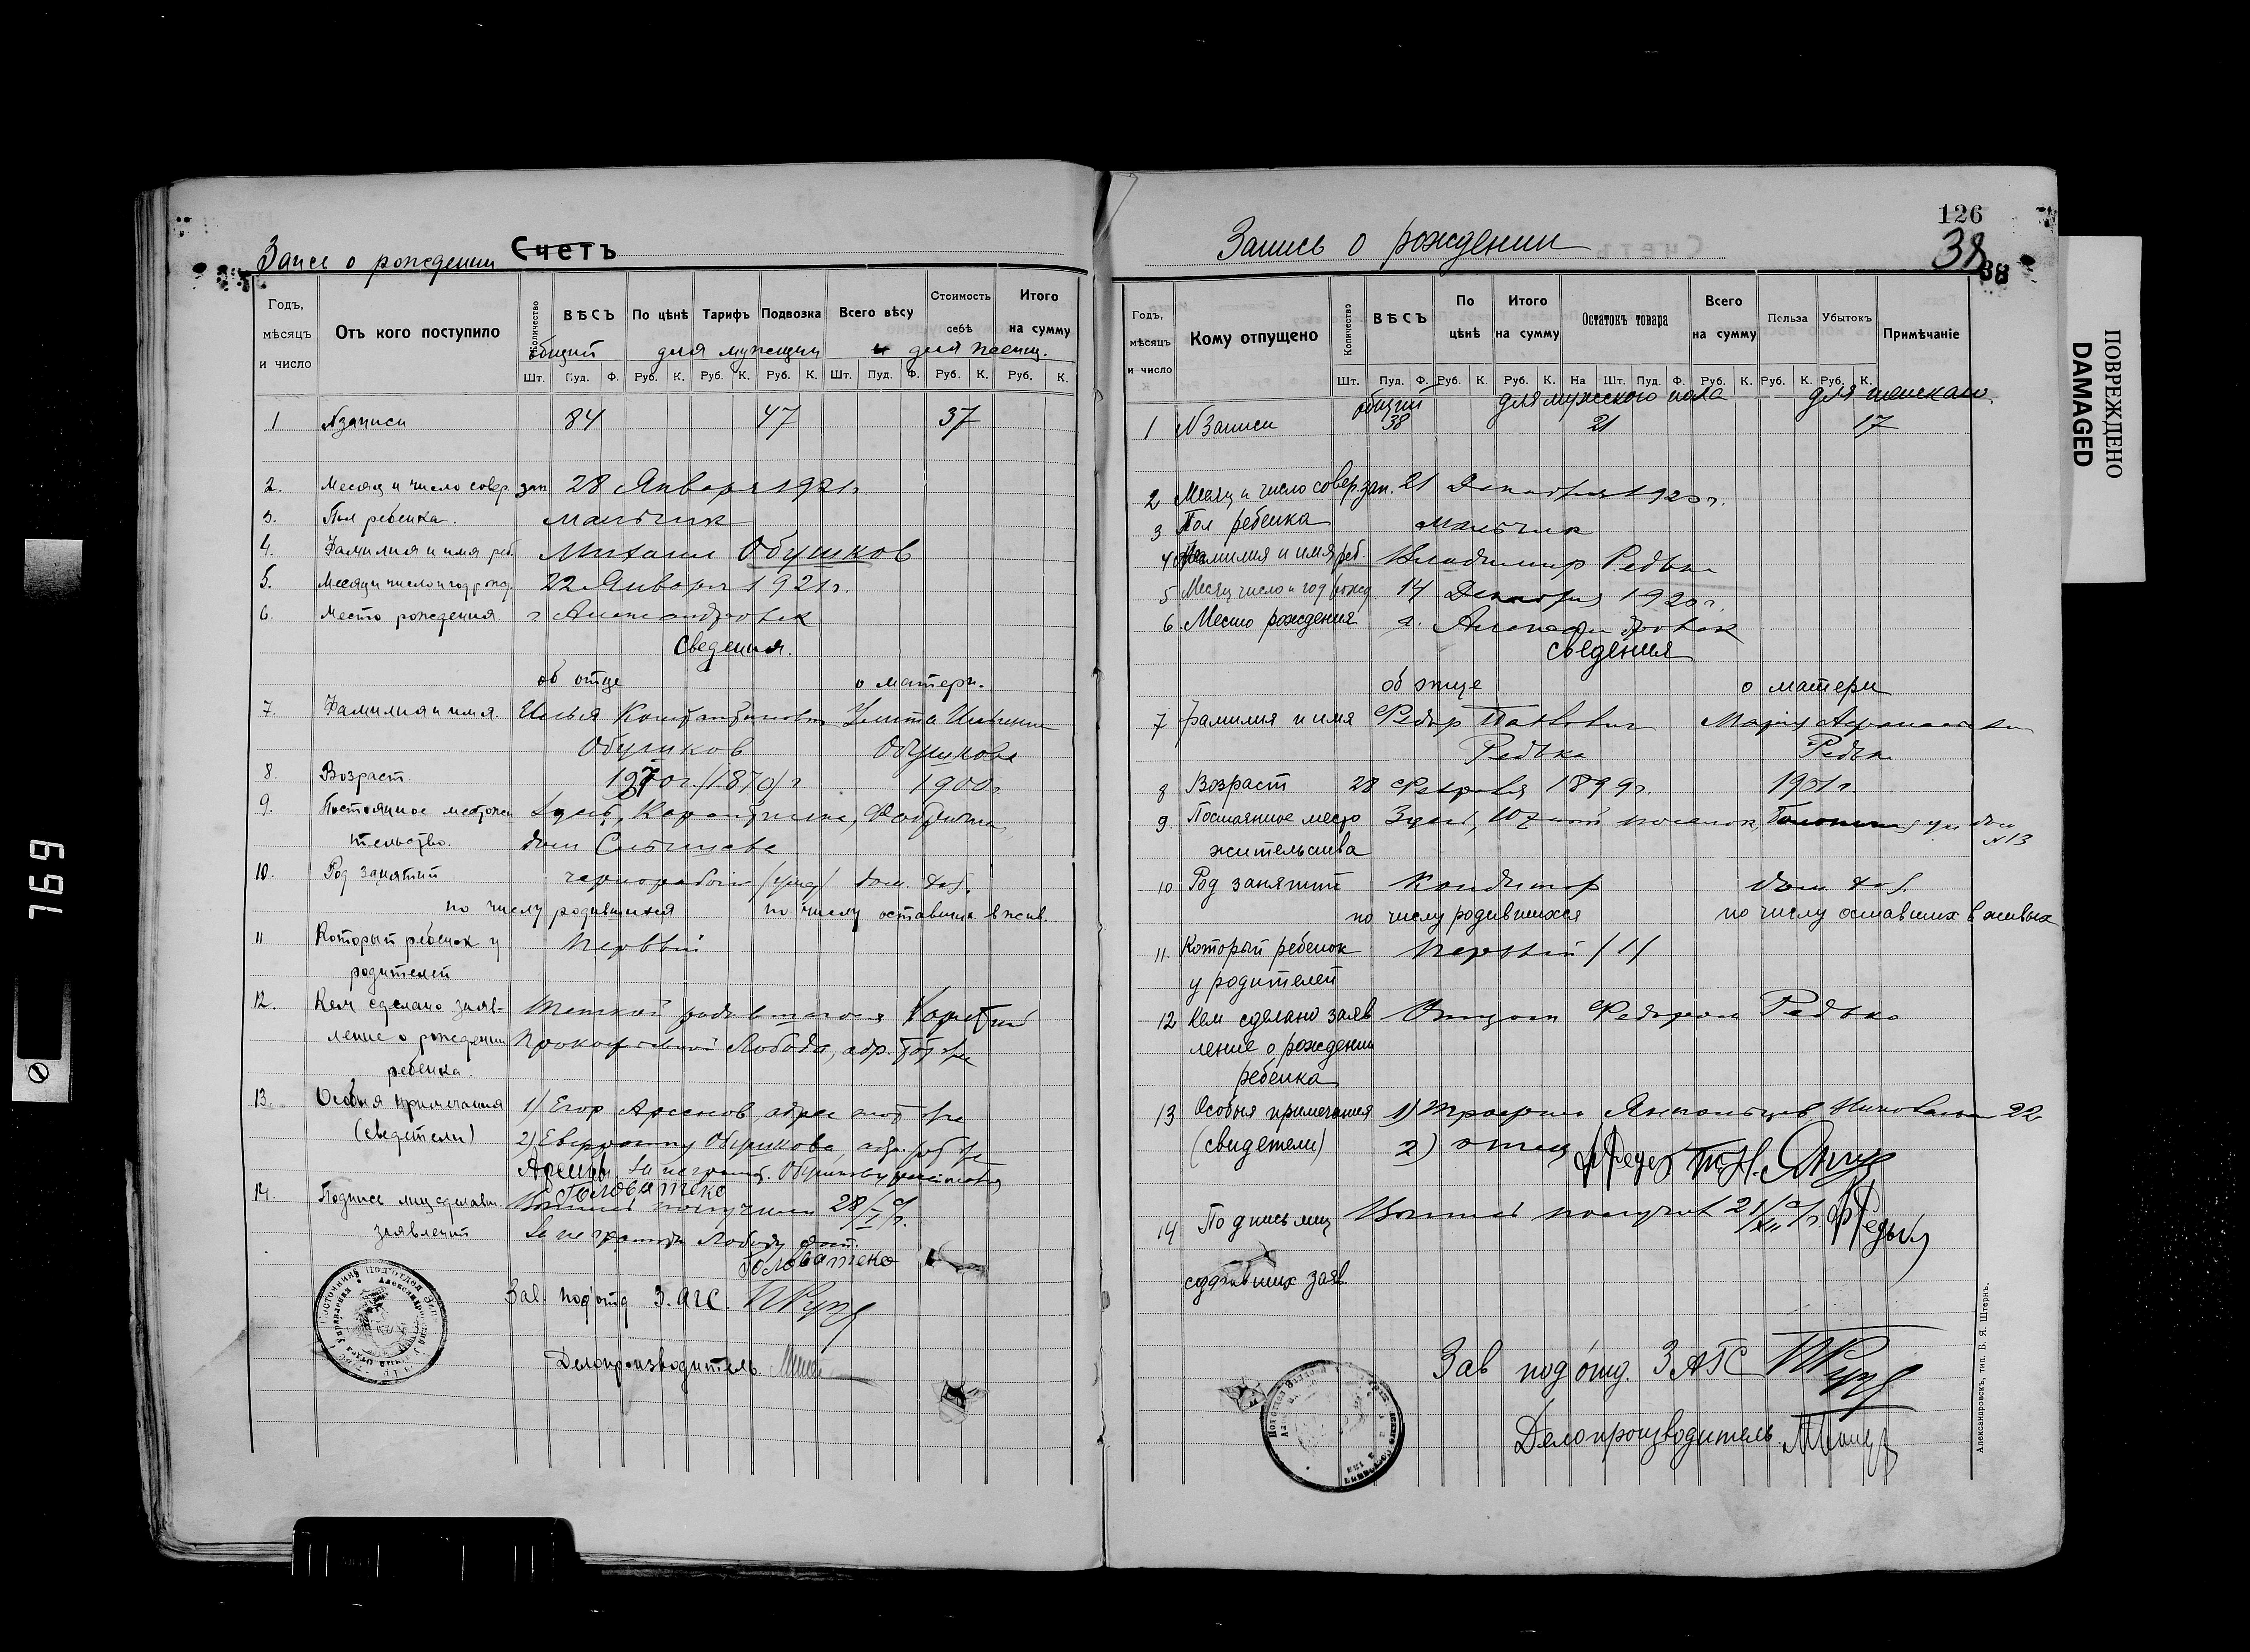 769
Запись о рождении Счетъ
Годъ, мѣсяцъ и число
Отъ кого поступило
Количество
ВѢСЪ
По цѣнѣ
Тарифъ
Подвозка
Всего вѣсу
Стоимость себѣ
Итого на сумму
общий для мужчин и для женщ.
Шт. Пуд. Ф. Руб. К. Руб. К. Руб. К. Шт. Пуд. Ф. Руб. К. Руб. К.
1 № записи 84 47 37
2. Месяц и число совер. зап 28 Января 1921 г.
3. Пол ребенка. мальчик
4. Фамилия и имя реб. Михаил Обушков
5. Месяц и число и год рожд. 22 Января 1921 г.
6. Место рождения г Александровск
Сведения.
об отце о матери.
7. Фамилия и имя. Илья Константинович Улита Ильинич
Обушков Обушкова
8. Возраст. /1870/ г. 1900 г
9. Постоянное место жи здесь, Карантинка,
тельство. дом
10. Род занятий чернорабоч дом. хоз.
по числу родившихся по числу оставших. в жив.
11 Который ребенок у первый
родителей
12. Кем сделано заяв-
ление о рождении Прокофьевной Лобода, адр. тот же
ребенка.
13. Особыя примечания 1) Егор Арсенов, адрес тот же
(свидетели) 2) Обушкова, адр. тот же
Арсенов За неграмотн. Обушкову
Головатенко
14. Подписи лиц сделавш. получила 28/I с/г.
заявления За неграмотн Лободу
Головатенко
Зав. под'отд З.АГС.
Делопроизводитель.
126
38
38
Запись о рождении
Годъ, мѣсяцъ и число
Кому отпущено
Количество
ВѢСЪ
По цѣнѣ
Итого на сумму
Остатокъ товара
Всего на сумму
Польза
Убытокъ
Примѣчаніе
Шт. Пуд. Ф. Руб. К. Руб. К. На Шт. Пуд. Ф. Руб. К. Руб. К. Руб. К.
общий для мужского пола для женскаго.
1 № Записи 38 21 17
2 Месяц и число совер. зап. 21 Декабря 1920 г.
3 Пол ребенка мальчик
4 Фамилия и имя реб. Владимир Редька
5 Месяц число и год рожд 14 Декабря 1920 г.
6. Место рождения г. Александровск
сведения
об отце о матери
7 фамилия и имя Федор Павлович Мария Афанасьевна
Редька Редька
8 Возраст 28 Февраля 1899 г. 1901 г.
9. Постоянное место Здесь, Южный поселок, ул дом
жительства №13
10 Род занятий Кондитор дом. хоз.
по числу родившихся по числу оставших в живых
11. Который ребенок первый /1/
у родителей
12 Кем сделано заяв Отцом Федором Редько
ление о рождении
ребенка
13 Особыя примечания 1) 22
(свидетели) 2) отец
14 Подпись лиц получил 21/XII с/г
сделавших заяв.
Зав под'отд. ЗАГС
Делопроизводитель.
Александровскъ, тип. Б. Я. Штернъ.
ПОВРЕЖДЕНО
DAMAGED